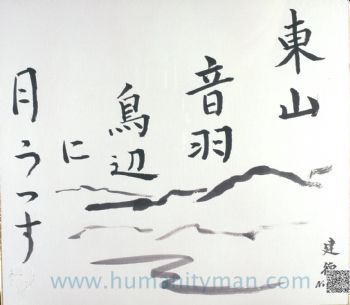 東山
音羽
鳥辺
に
目うつす
建德
www.humanityman.com